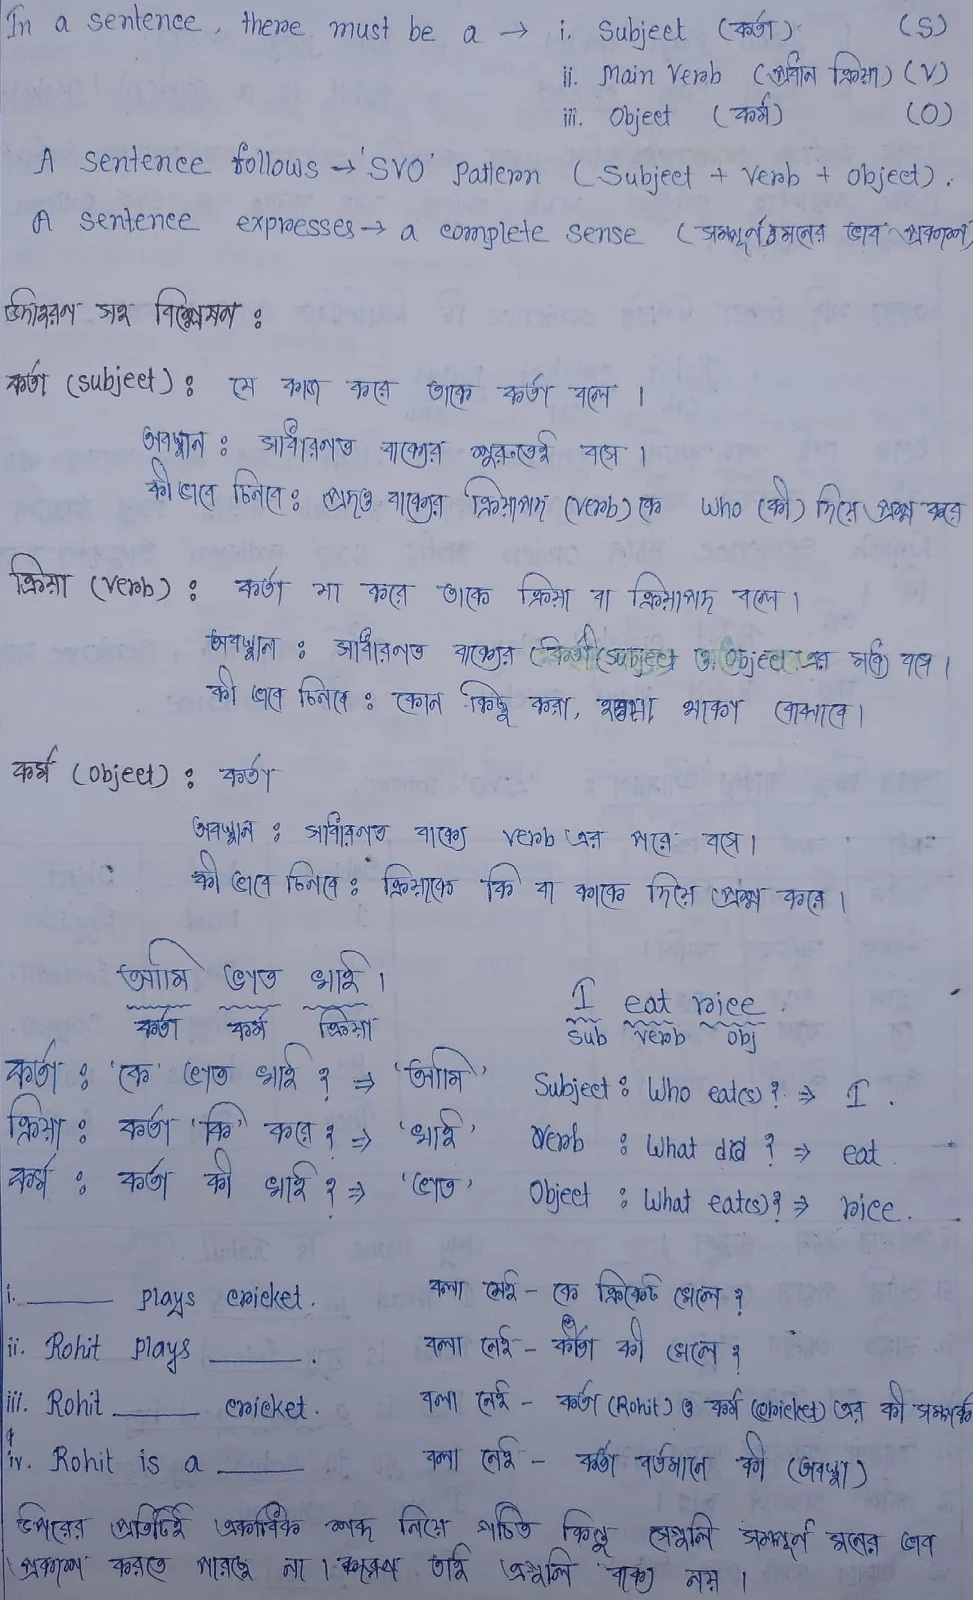 In a sentence, there must be a → i. Subject (কর্তা) (S)
ii. Main Verb (প্রধান ক্রিয়া) (V)
iii. Object (কর্ম) (O)
A sentence follows → 'SVO' Pattern (Subject + Verb + Object).
A sentence expresses → a complete sense (সম্পূর্ণ মনের ভাব প্রকাশ)
উদাহরন সহ বিশ্লেষন :
কর্তা (subject) : যে কাজ করে তাকে কর্তা বলে ।
অবস্থান : সাধারনত বাক্যের শুরুতেই বসে ।
কী ভাবে চিনবে : প্রদত্ত বাক্যের ক্রিয়াপদ (verb) কে Who (কে) দিয়ে প্রশ্ন করে
ক্রিয়া (verb) : কর্তা যা করে তাকে ক্রিয়া বা ক্রিয়াপদ বলে ।
অবস্থান : সাধারনত বাক্যের subject ও object এর মধ্যে বসে ।
কী ভাবে চিনবে : কোন কিছু করা, হওয়া থাকা বোঝাবে ।
কর্ম (object) : কর্তা
অবস্থান : সাধারনত বাক্যে verb এর পরে বসে ।
কী ভাবে চিনবে : ক্রিয়াকে কি বা কাকে দিয়ে প্রশ্ন করে ।
আমি ভাত খাই । I eat rice.
কর্তা কর্ম ক্রিয়া sub verb obj
কর্তা : 'কে' ভাত খাই ? ⇒ 'আমি' Subject : Who eat(s) ? ⇒ I.
ক্রিয়া : কর্তা 'কি' করে ? ⇒ 'খাই' Verb : What did ? ⇒ eat.
কর্ম : কর্তা কী খাই ? ⇒ 'ভাত' Object : What eat(s) ? ⇒ rice.
i. ______ plays cricket. বলা নেই – কে ক্রিকেট খেলে ?
ii. Rohit plays ______. বলা নেই – কর্তা কী খেলে ?
iii. Rohit ______ cricket. বলা নেই – কর্তা (Rohit) ও কর্ম (cricket) এর কী সম্পর্ক
iv. Rohit is a ______ বলা নেই – কর্তা বর্তমানে কী (অবস্থা)
উপরের প্রতিটিই একাধিক শব্দ নিয়ে গঠিত কিন্তু সেগুলি সম্পূর্ণ মনের ভাব
প্রকাশ করতে পারছে না । তাই এগুলি বাক্য নয় ।